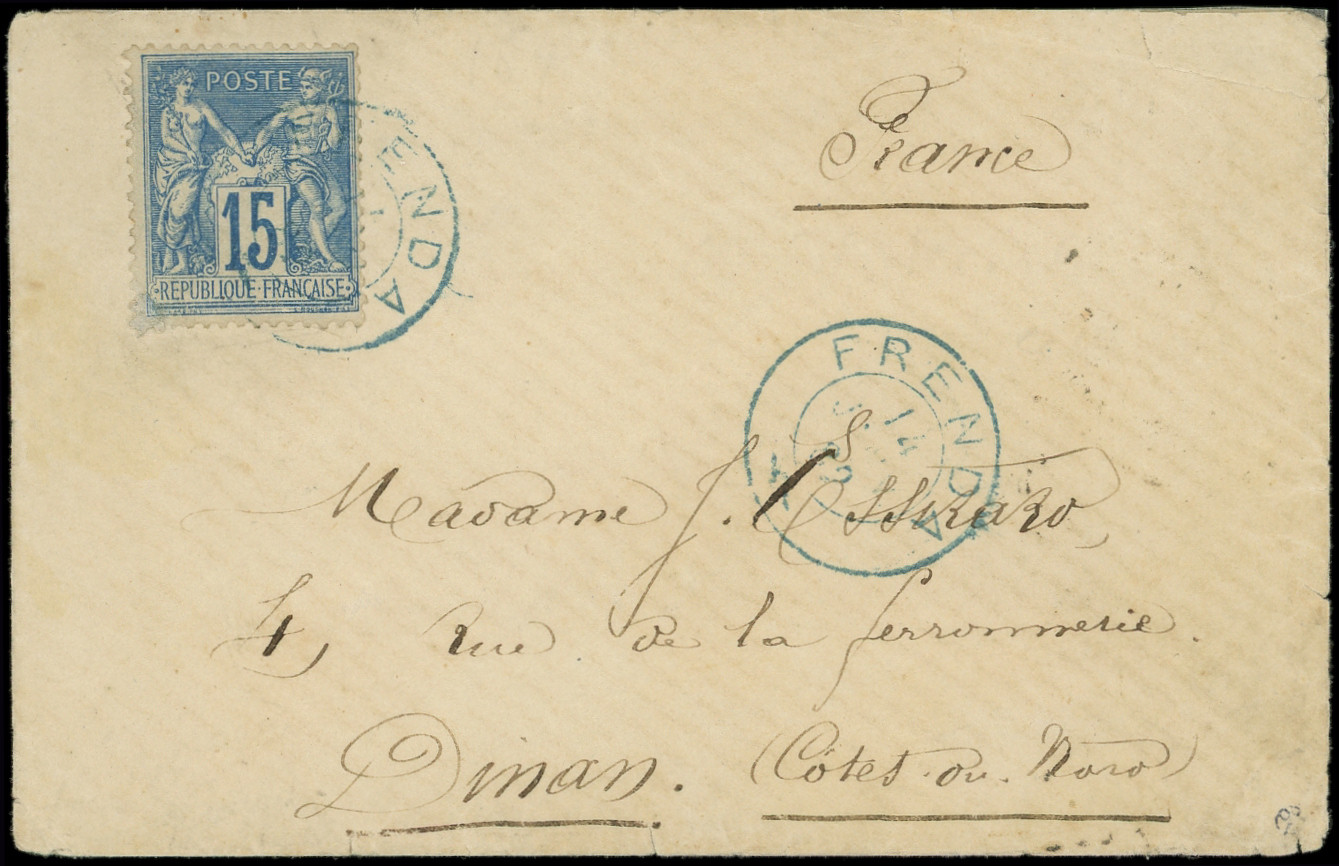 POSTE
15
REPUBLIQUE·FRANÇAISE
ENDA
France
FRENDA
14
Madame J.
4, Rue de la ferronnerie.
Dinan. (Côtes-du-Nord)